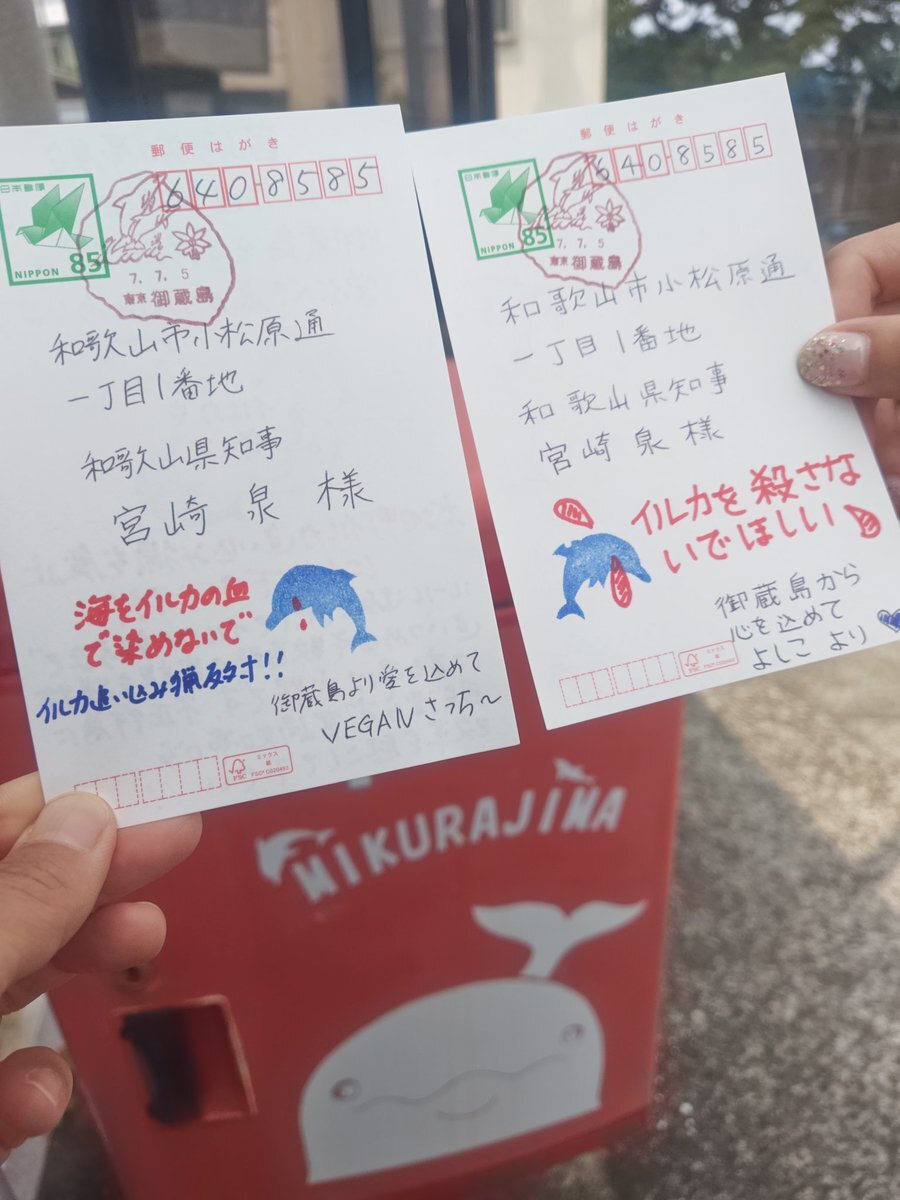 郵便はがき
日本郵便
NIPPON 85
6408585
7.7.5
東京 御蔵島
和歌山市小松原通
一丁目1番地
和歌山県知事
宮崎 泉 様
海をイルカの血
で染めないで
イルカ追い込み猟反対!!
御蔵島より愛を込めて
VEGANさっち〜
ミックス
紙
FSC
FSC® C020493
郵便はがき
日本郵便
NIPPON 85
6408585
7.7.5
東京 御蔵島
和歌山市小松原通
一丁目1番地
和歌山県知事
宮崎 泉 様
イルカを殺さな
いでほしい
御蔵島から
心を込めて
よしこ より
ミックス
紙
FSC
MIKURAJIMA